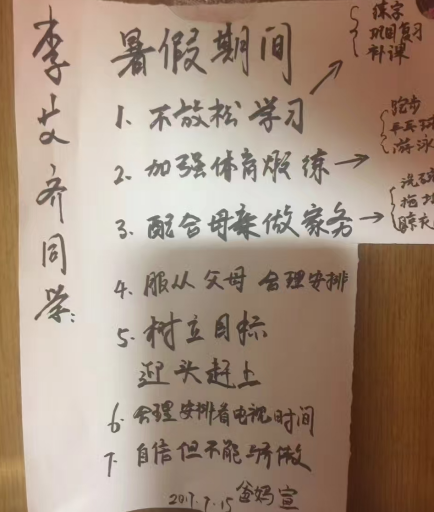 李艾齐同学:
暑假期间
1、不放松学习
练字
班目复习
补课
2、加强体育煅练
跑步
乒乓球
游泳
3、配合母亲做家务
洗碗
拖地
晾衣
4、服从父母合理安排
5、树立目标
迎头赶上
6、合理安排看电视时间
7、自信但不能骄傲
2017.7.15 爸妈宣